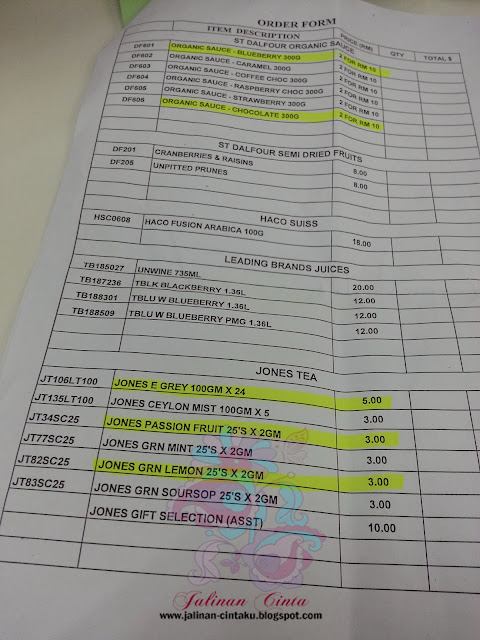 ORDER FORM
ITEM DESCRIPTION PRICE (RM) QTY TOTAL $
ST DALFOUR ORGANIC SAUCE
DF601 ORGANIC SAUCE - BLUEBERRY 300G 2 FOR RM 10
DF602 ORGANIC SAUCE - CARAMEL 300G 2 FOR RM 10
DF603 ORGANIC SAUCE - COFFEE CHOC 300G 2 FOR RM 10
DF604 ORGANIC SAUCE - RASPBERRY CHOC 300G 2 FOR RM 10
DF605 ORGANIC SAUCE - STRAWBERRY 300G 2 FOR RM 10
DF606 ORGANIC SAUCE - CHOCOLATE 300G 2 FOR RM 10
ST DALFOUR SEMI DRIED FRUITS
DF201 CRANBERRIES & RAISINS 8.00
DF205 UNPITTED PRUNES 8.00
HACO SUISS
HSC0608 HACO FUSION ARABICA 100G 18.00
LEADING BRANDS JUICES
TB185027 UNWINE 735ML 20.00
TB187236 TBLK BLACKBERRY 1.36L 12.00
TB188301 TBLU W BLUEBERRY 1.36L 12.00
TB188509 TBLU W BLUEBERRY PMG 1.36L 12.00
JONES TEA
JT106LT100 JONES E GREY 100GM X 24 5.00
JT135LT100 JONES CEYLON MIST 100GM X 5 3.00
JT34SC25 JONES PASSION FRUIT 25'S X 2GM 3.00
JT77SC25 JONES GRN MINT 25'S X 2GM 3.00
JT82SC25 JONES GRN LEMON 25'S X 2GM 3.00
JT83SC25 JONES GRN SOURSOP 25'S X 2GM 3.00
JONES GIFT SELECTION (ASST) 10.00
Jalinan Cinta
www.jalinan-cintaku.blogspot.com